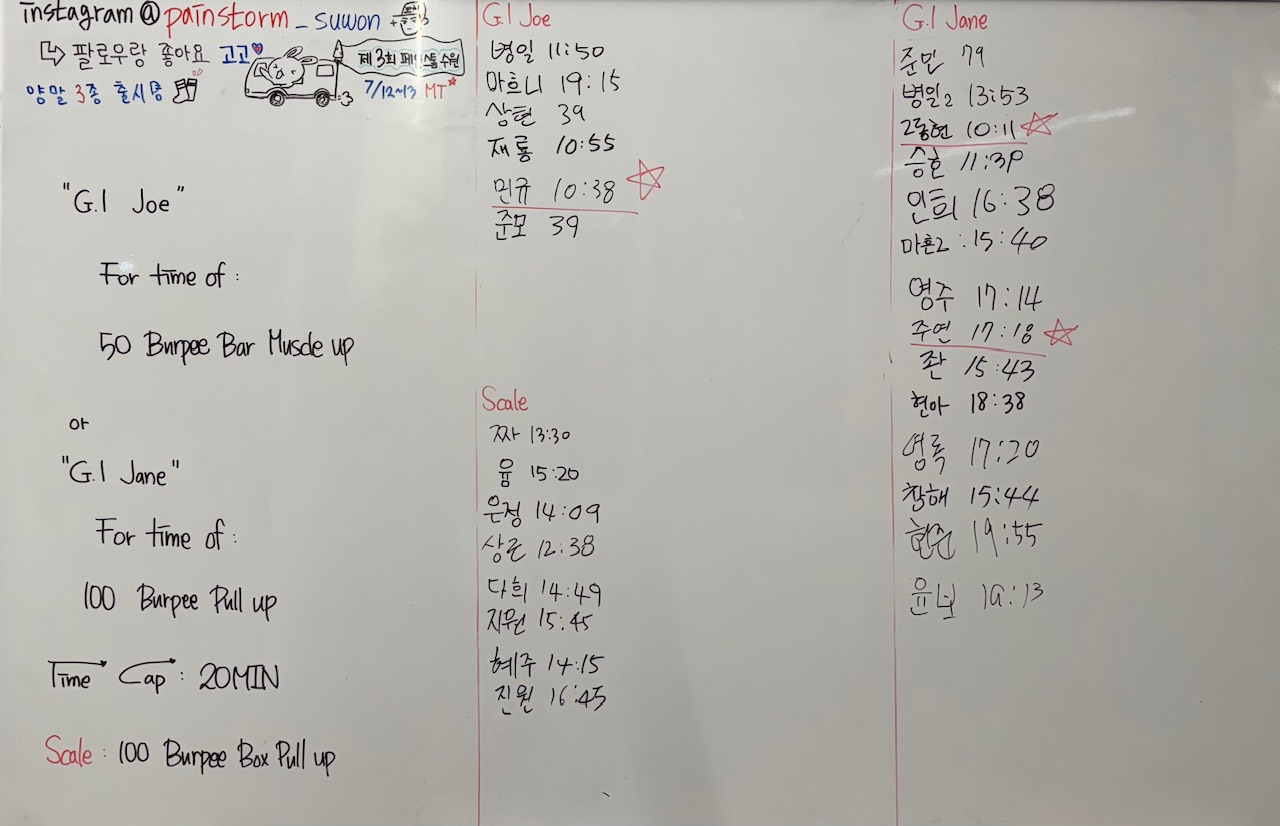 instagram @ painstorm_suwon
↳ 팔로우랑 좋아요 고고♥
제 3회 페인스톰 수원
양말 3종 출시중
7/12~13 MT
"G.I Joe"
For time of :
50 Burpee Bar Muscle up
or
"G.I Jane"
For time of :
100 Burpee Pull up
Time Cap : 20MIN
Scale : 100 Burpee Box Pull up
G.I Joe
병일 11:50
마흐니 19:15
상현 39
재룡 10:55
민규 10:38
준모 39
Scale
짜 13:30
윰 15:20
은정 14:09
상은 12:38
다희 14:49
지원 15:45
혜주 14:15
진원 16:45
G.I Jane
준민 79
병일2 13:53
2동현 10:11
승호 11:39
인희 16:38
마흔2 : 15:40
영주 17:14
주연 17:18
좐 15:43
현아 18:38
영록 17:20
창해 15:44
현준 19:55
19:13